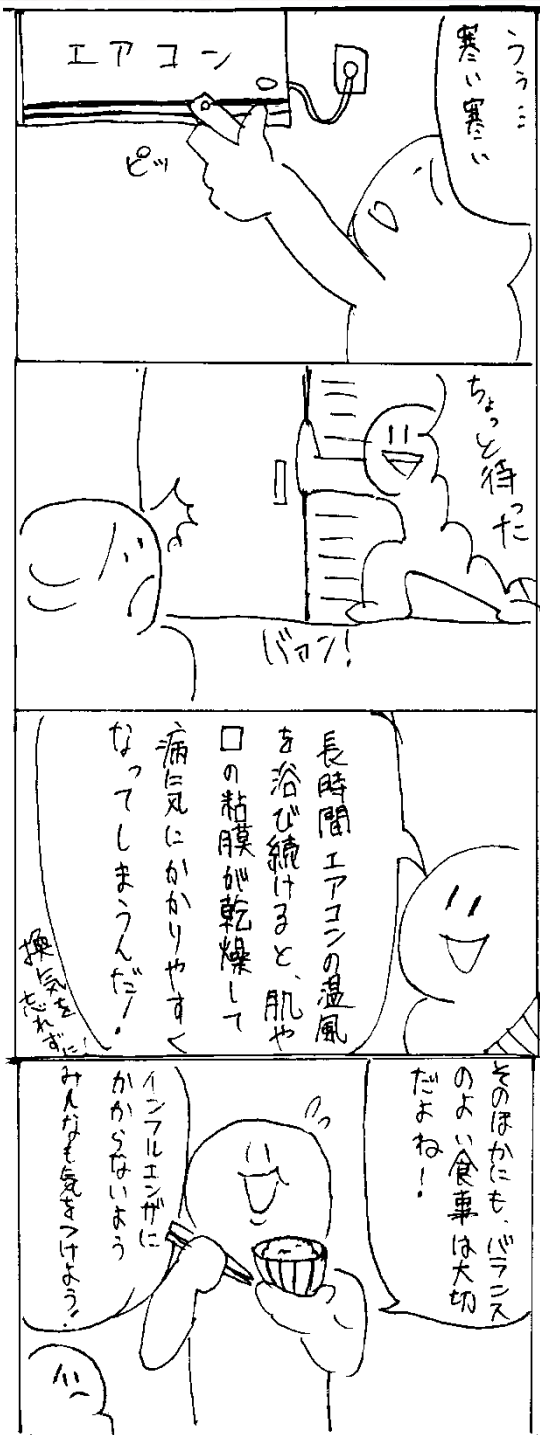 うぅ…
寒い寒い
エアコン
ピッ
ちょっと待った
バァン!
長時間エアコンの温風
を浴び続けると、肌や
口の粘膜が乾燥して
病気にかかりやすく
なってしまうんだ!
換気を
忘れずに!
そのほかにも、バランス
のよい食事は大切
だよね!
インフルエンザに
かからないよう
みんなも気をつけよう!